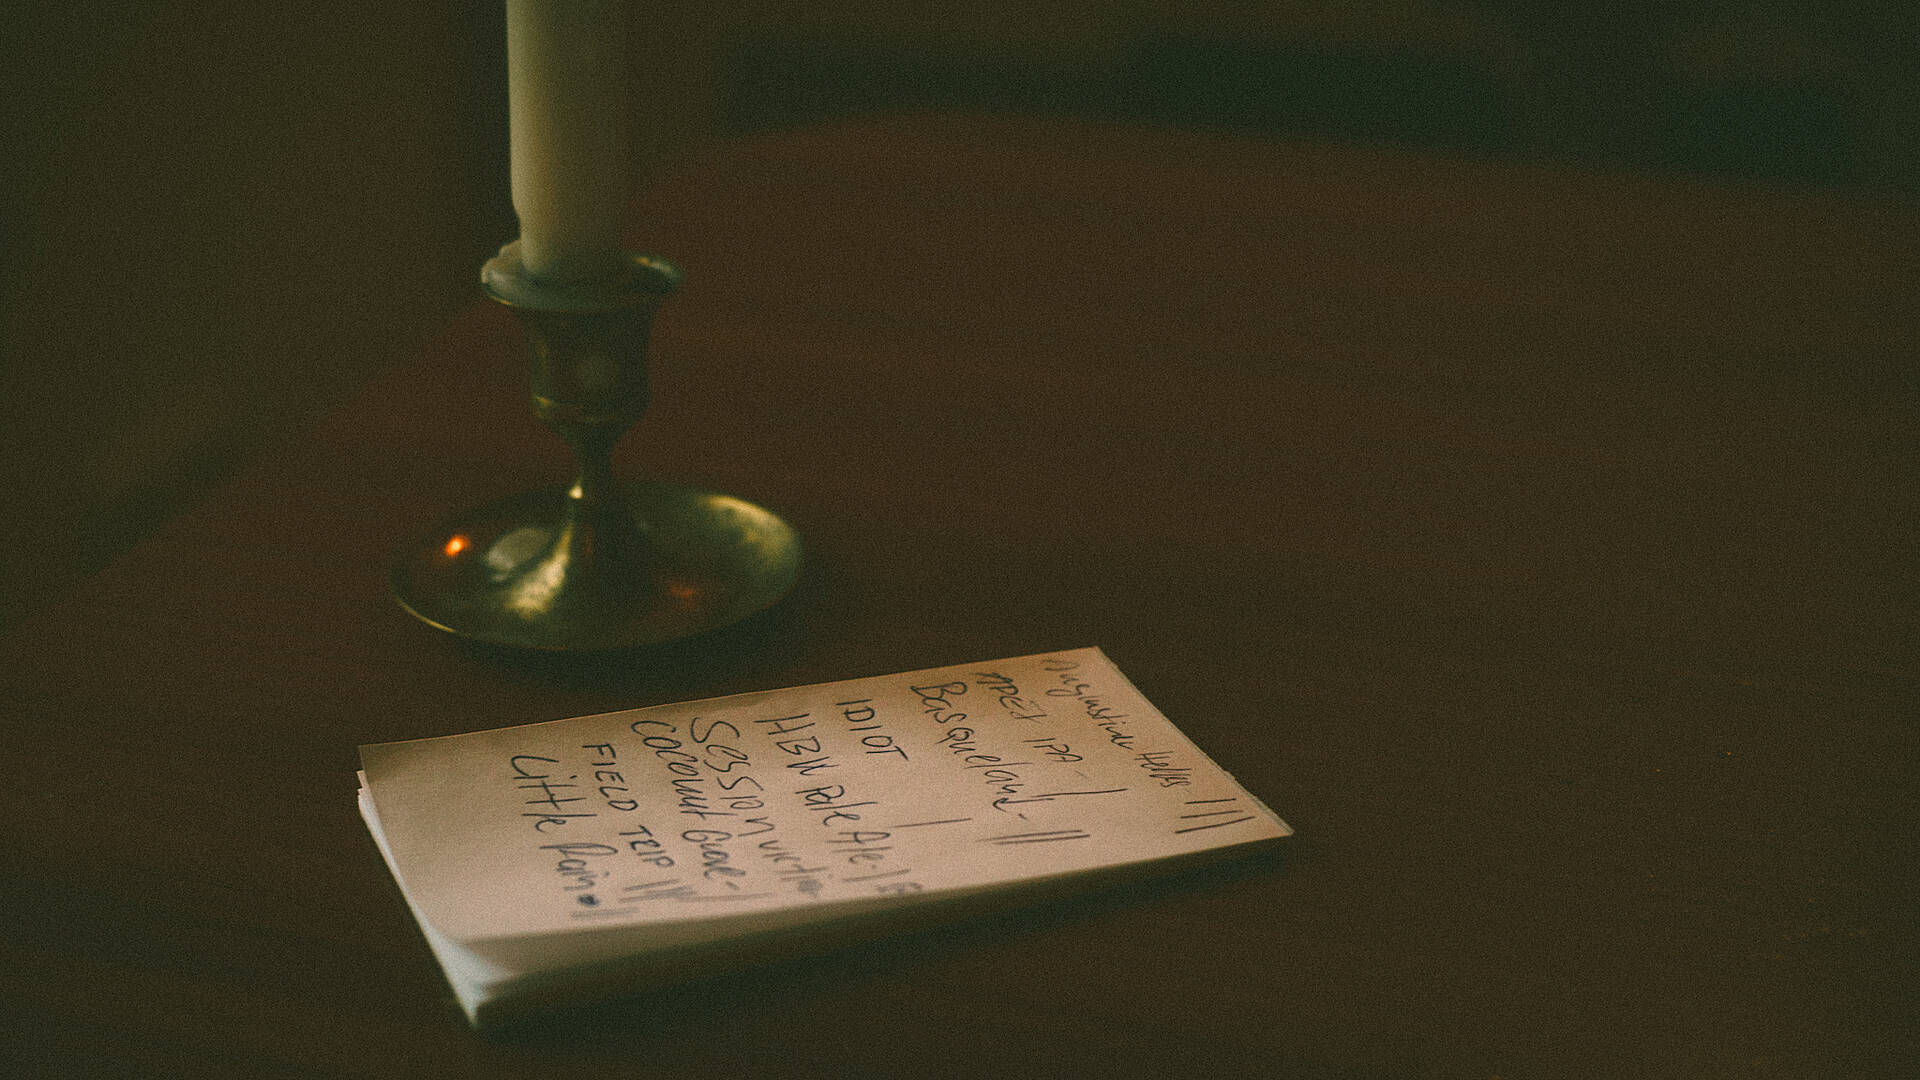 Augustiner Helles |||
APEX IPA - |
Basqueland - ||
IDIOT |
HBW Pale Ale - |
Session
Coconut Grove - |
FIELD TRIP
Little Rain